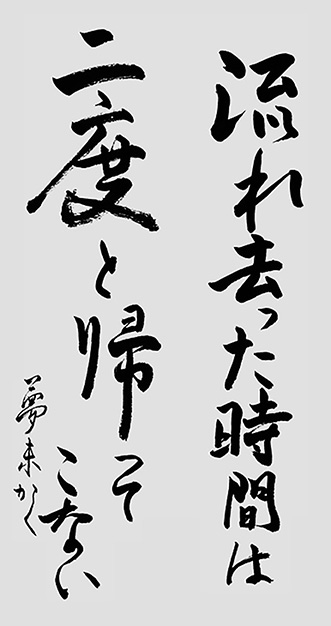 流れ去った時間は
二度と帰って
こない
夢未かく